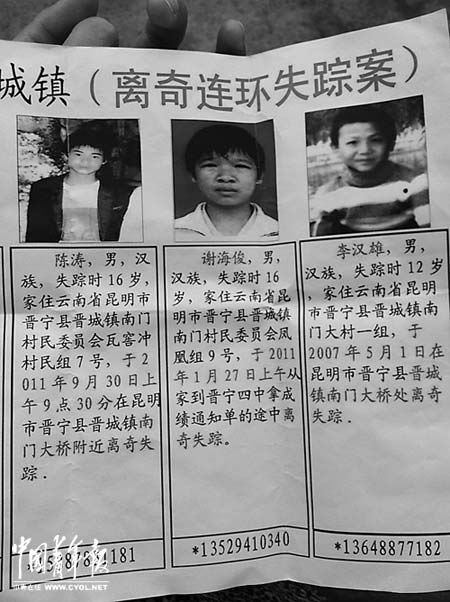 城镇（离奇连环失踪案）
陈涛，男，汉
族，失踪时16岁，
家住云南省昆明市
晋宁县晋城镇南门
村民委员会瓦窑冲
村民组7号，于2
011年9月30日上
午9点30分在昆明
市晋宁县晋城镇南
门大桥附近离奇失
踪．
181
谢海俊，男，
汉族，失踪时16
岁，家住云南省昆
明市晋宁县晋城镇
南门村民委员会凤
凰组9号，于2011
年1月27日上午从
家到晋宁四中拿成
绩通知单的途中离
奇失踪。
*13529410340
李汉雄，男，
汉族，失踪时12岁
，家住云南省昆明
市晋宁县晋城镇南
门大村一组，于
2007年5月1日在
昆明市晋宁县晋城
镇南门大桥处离奇
失踪．
*13648877182
中国青年报
中青在线 WWW.CYOL.NET